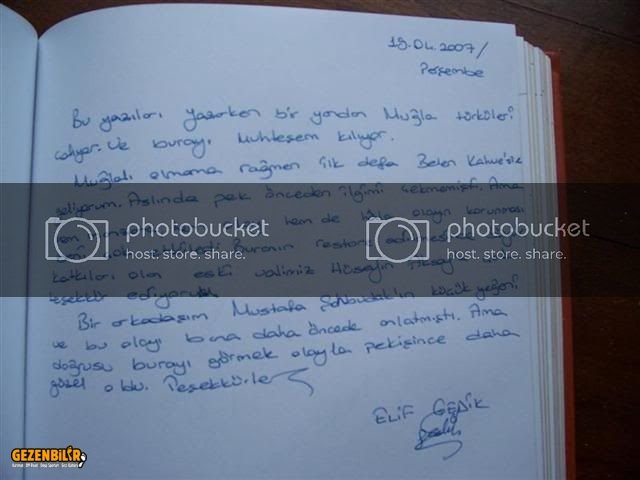 19.04.2007/
Perşembe
Bu yazıları yazarken bir yandan Muğla türküleri
çalıyor. Ve burayı muhteşem kılıyor.
Muğlalı olmama rağmen ilk defa Belen Kahve'sine
geliyorum. Aslında pek önceden ilgimi çekmemişti. Ama
hem de olayın korunması
beni Buranın restore edilmesinde
katkıları olan eski valimiz Hüseyin
teşekkür ediyorum.
Bir arkadaşım Mustafa küçük yeğeni
ve bu olayı bana daha öncede anlatmıştı. Ama
doğrusu burayı görmek olayla pekişince daha
güzel oldu. Teşekkürler
ELİF GEDİK
photobucket
host. store. share.
photobucket
host. store. share.
GEZENBİLİR